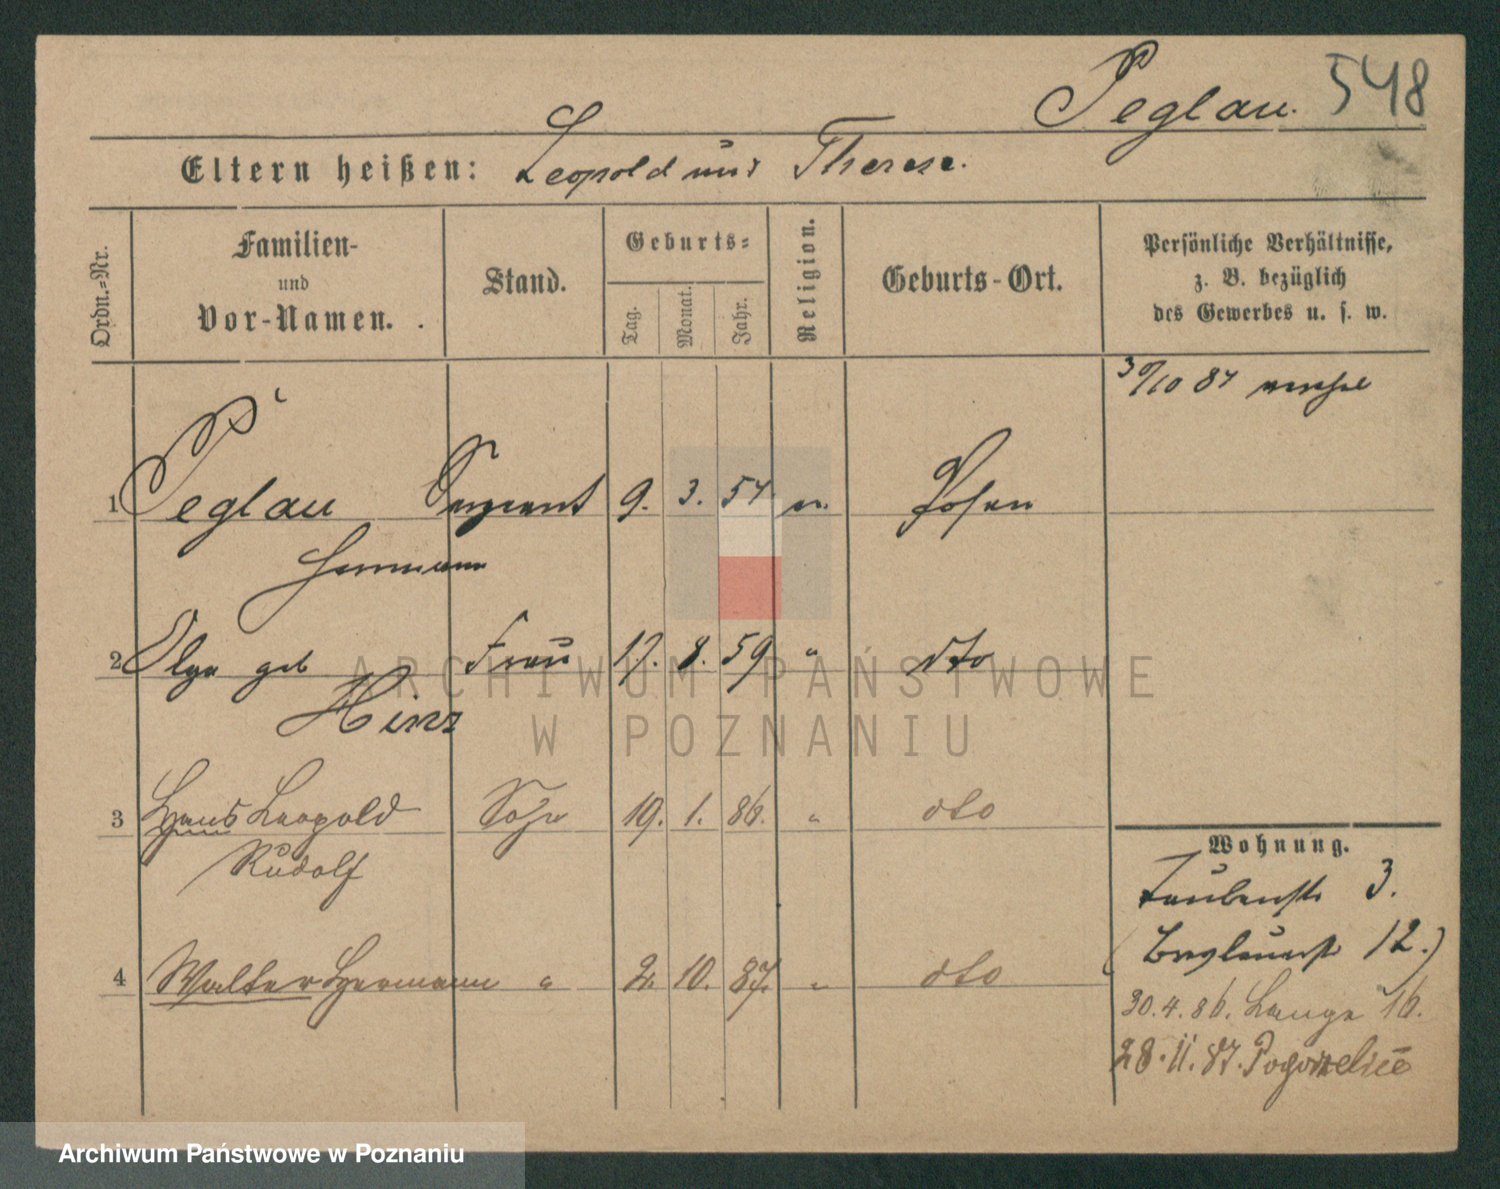 Peglau. 548
Eltern heißen: Leopold und Therese.
Ordn.-Nr.
Familien-
und
Vor-Namen.
Stand.
Geburts-
Tag.
Monat.
Jahr.
Religion.
Geburts-Ort.
Persönliche Verhältnisse,
z. B. bezüglich
des Gewerbes u. s. w.
30/10 84
1 Peglau Sergeant 9. 3. 54 Posen
Hermann
2 Olga geb Frau 17. 8. 59 " dto
Hinz
3 Hans Leopold Sohn 19. 1. 86. " dto
Rudolf
4 Walter Hermann " 2. 10. 87. " dto
Wohnung.
Taubenstr 3.
(Breslauerstr 12.)
30.4.86. Lange 16.
28.11.87. Pogorzelice
ARCHIWUM PAŃSTWOWE
W POZNANIU
Archiwum Państwowe w Poznaniu